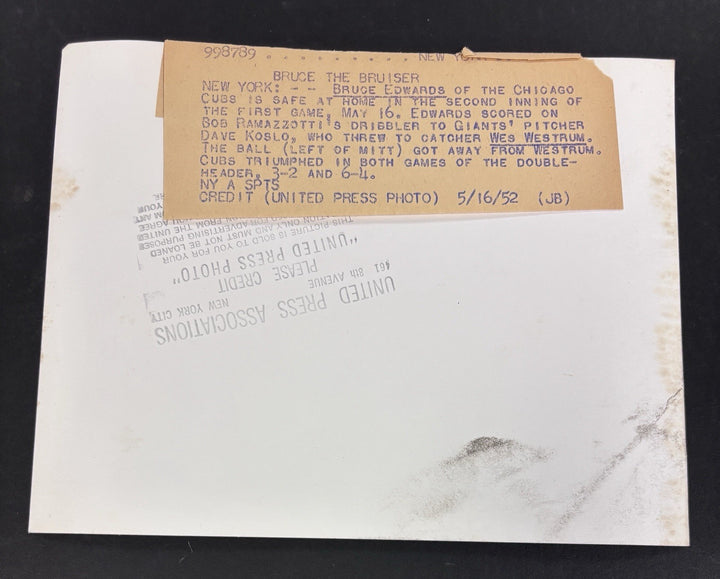 998789 .......... NEW YO
BRUCE THE BRUISER
NEW YORK: -- BRUCE EDWARDS OF THE CHICAGO
CUBS IS SAFE AT HOME IN THE SECOND INNING OF
THE FIRST GAME, MAY 16. EDWARDS SCORED ON
BOB RAMAZZOTTI'S DRIBBLER TO GIANTS' PITCHER
DAVE KOSLO, WHO THREW TO CATCHER WES WESTRUM.
THE BALL (LEFT OF MITT) GOT AWAY FROM WESTRUM.
CUBS TRIUMPHED IN BOTH GAMES OF THE DOUBLE-
HEADER, 3-2 AND 6-4.
NY A SPTS
CREDIT (UNITED PRESS PHOTO) 5/16/52 (JB)
UNITED PRESS ASSOCIATIONS
461 8th AVENUE NEW YORK CITY
PLEASE CREDIT
"UNITED PRESS PHOTO"
THIS PICTURE IS SOLD TO YOU FOR YOUR
ATION ONLY AND MUST NOT BE LOANED
ADVERTISING PURPOSE
ION FROM THE UNITED